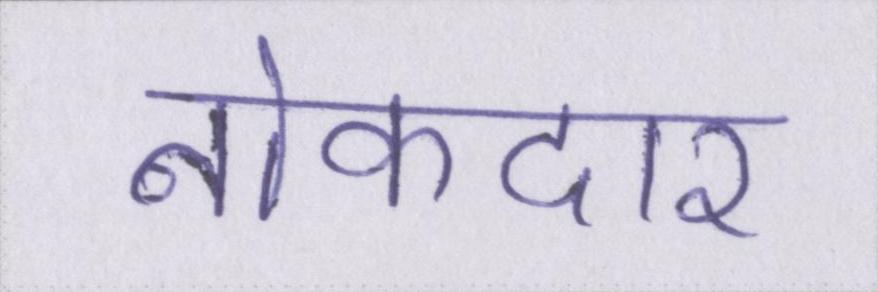 नोकदार